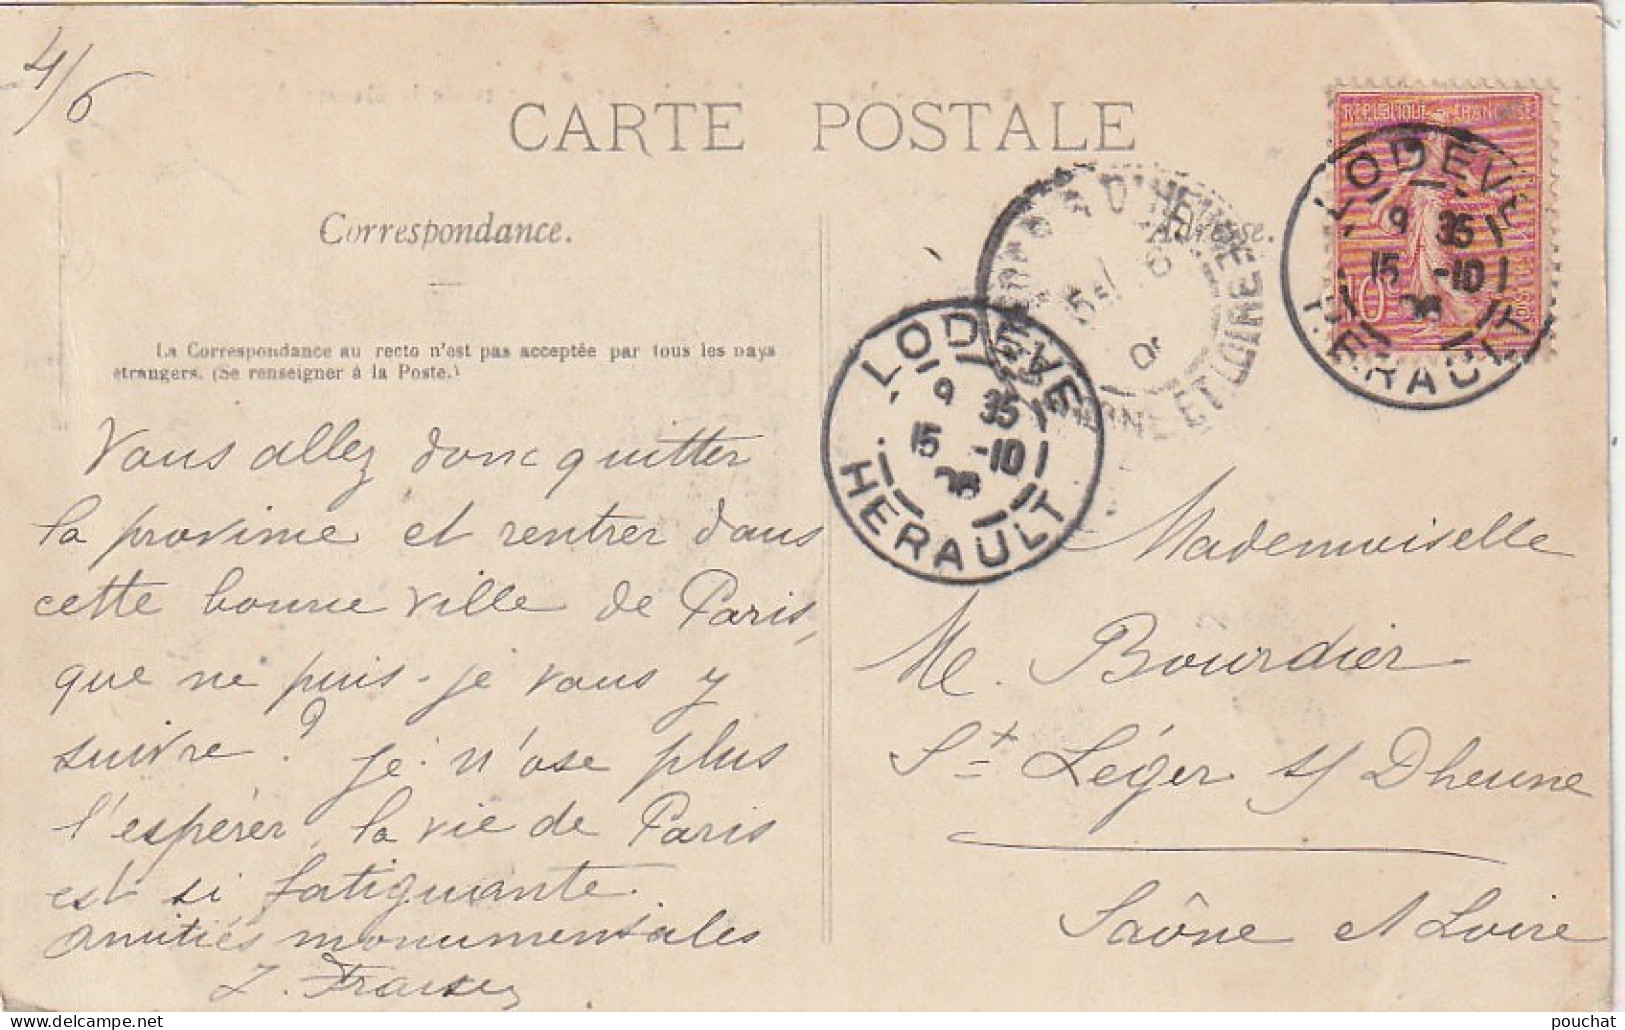 4/6
CARTE POSTALE
Correspondance.
Adresse.
La Correspondance au recto n'est pas acceptée par tous les pays
étrangers. (Se renseigner à la Poste.)
REPUBLIQUE FRANÇAISE
10
LODEVE
9 35
15 -10
HERAULT
LODEVE
9 35
15 -10
HERAULT
D'HEUNE
ET LOIRE
Vous allez donc quitter
la province et rentrer dans
cette bonne ville de Paris,
que ne puis-je vous y
suivre? je n'ose plus
l'espérer, la vie de Paris
est si fatiguante.
amitiés monumensales
Mademoiselle
M. Bourdier
St Léger s/ Dheune
Saône et Loire
pouchat